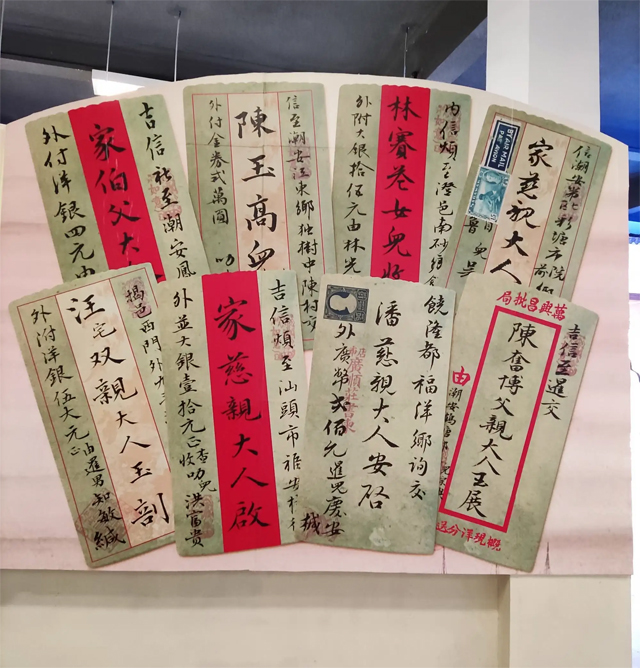 吉信社至潮安鳳
家伯父大人
外付洋銀四元由
信至潮安江東鄉獨樹中陳村
陳玉高
外付金券弍萬圓
內信煩至澄邑南砂
林賽巷女兒收
外附大銀拾伍元由林光
信潮安
BY AIR MAIL
PAR AVION
家慈親大人
揭邑西門外
汪宅双親大人玉剖
外附洋銀伍大元正由暹男知敏緘
吉信煩至汕頭市
家慈親大人啟
外並大銀壹拾元正收叻兒洪富貴
饒隆都福洋鄉詢交
潘慈親大人安啓
外廣幣弍佰元暹兒慶安緘
萬興昌批局
吉信至暹交
陳奮博父親大人玉展
由
概現洋分送